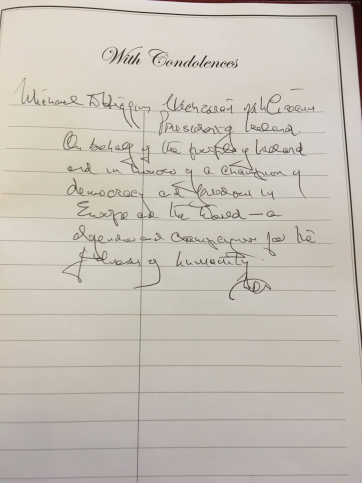 With Condolences
Michael D Higgins Uachtarán na hÉireann
President of Ireland
On behalf of the people of Ireland
and in honour of a champion of
democracy and freedom in
Europe and the World — a
and campaigner for the
of humanity.